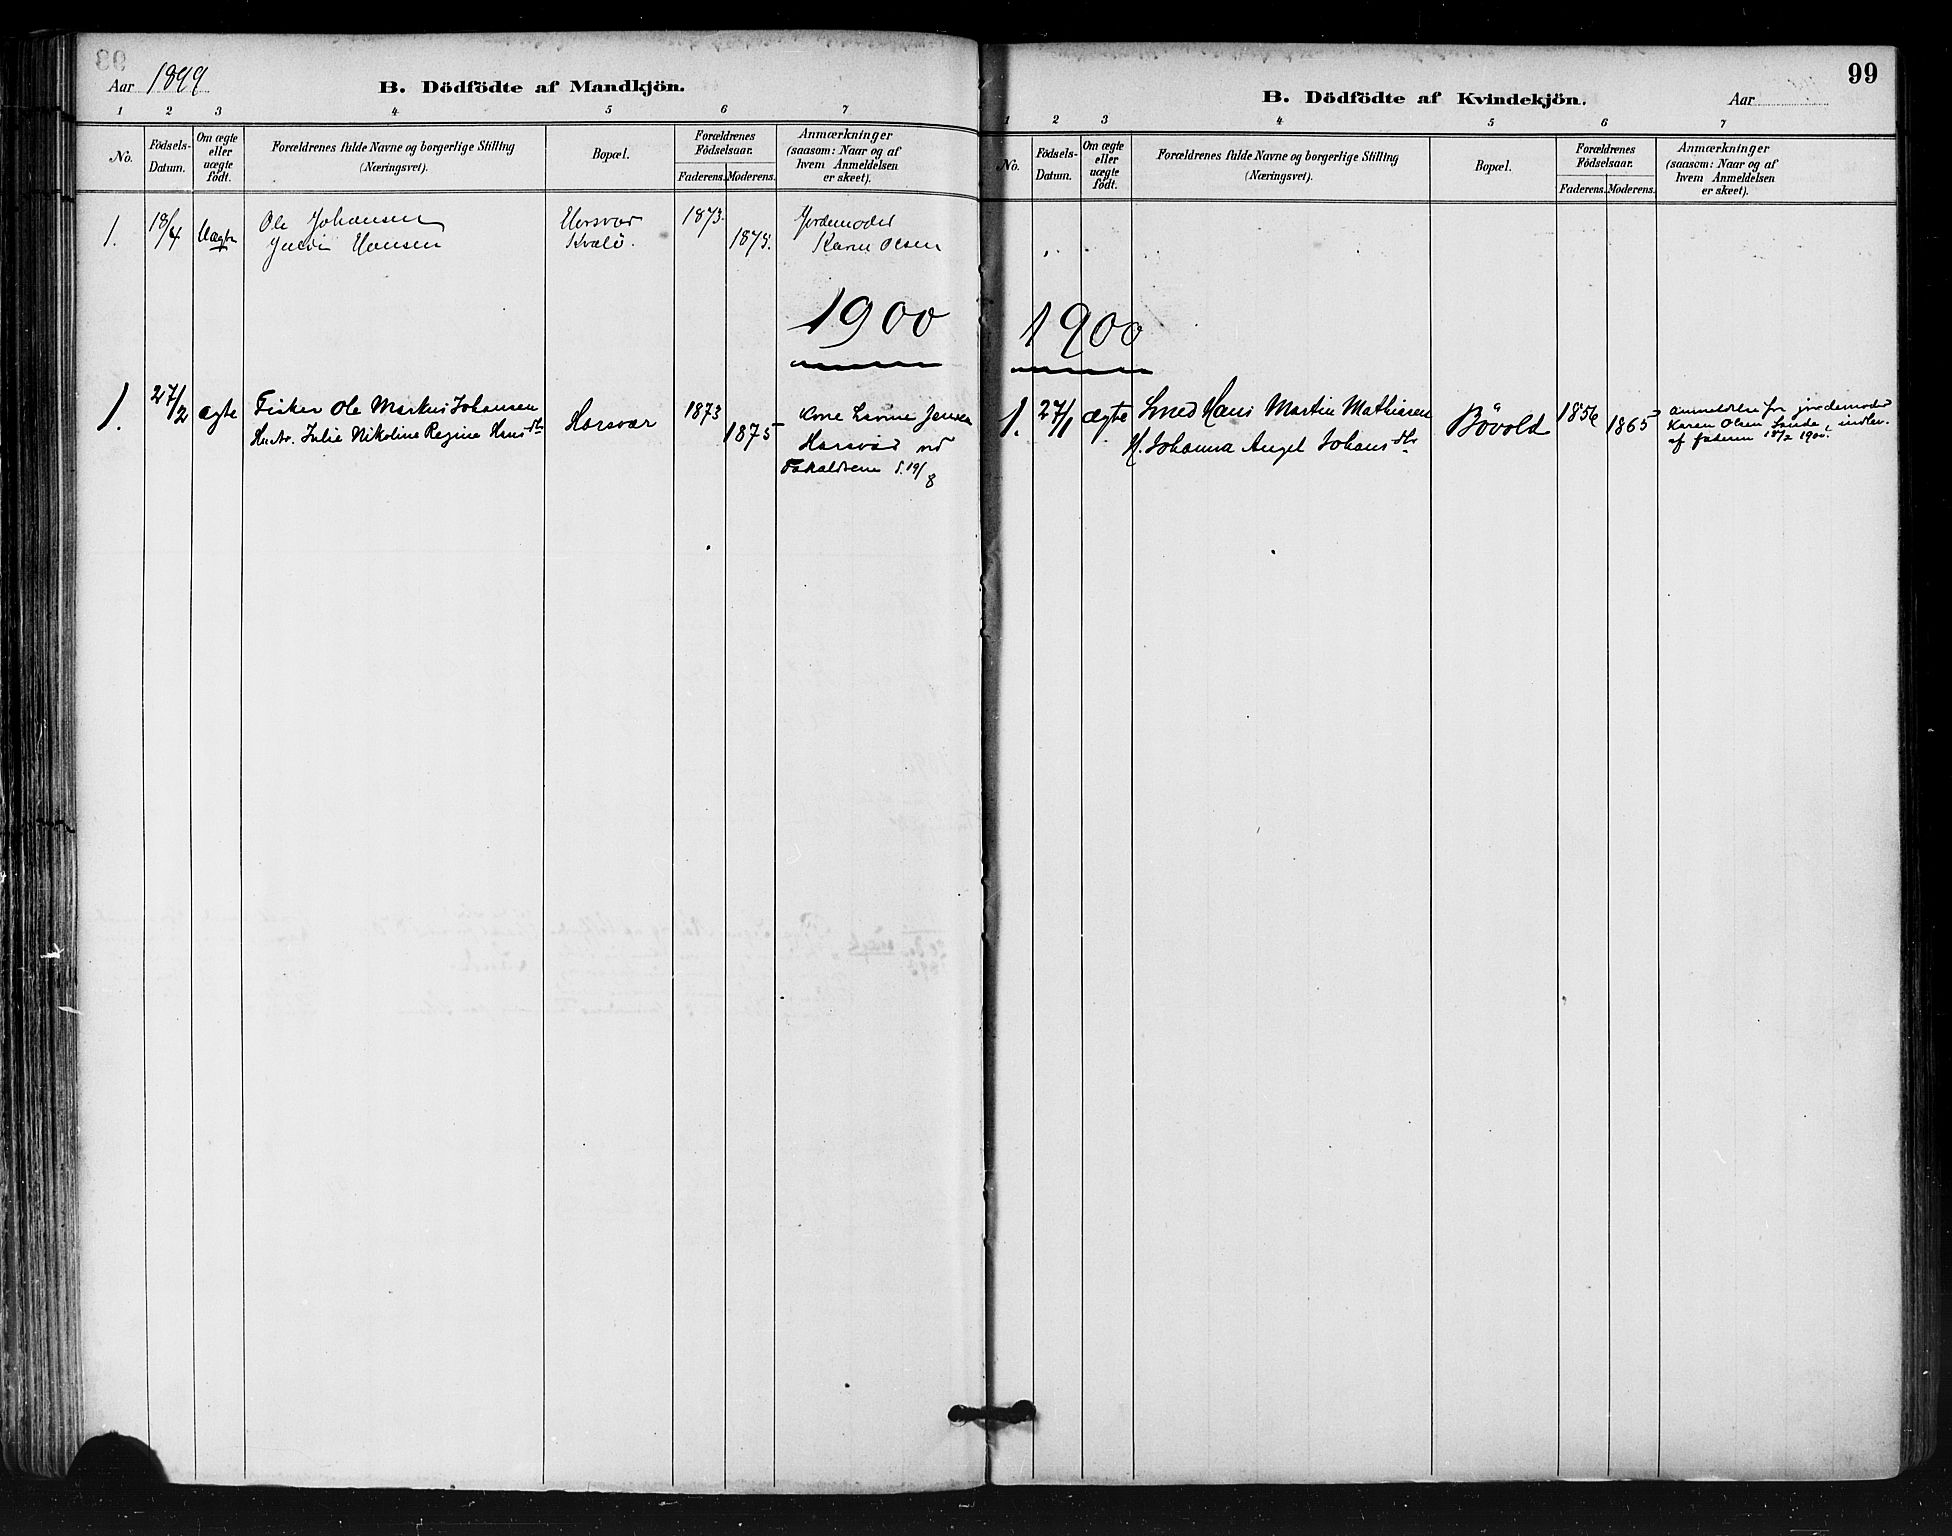 Aar 1899
B. Dödfödte af Mandkjön.
1 2 3 4 5 6 7
No.
Födsels-
Datum.
Om ægte
eller
uægte
født.
Forældrenes fulde Navne og borgerlige Stilling
(Næringsvei).
Bopæl.
Forældrenes
Födselsaar.
Faderens. Moderens.
Anmærkninger
(saasom: Naar og af
hvem Anmeldelsen
er skeet).
1. 18/4 Uægte Ole Johansen Horsvær 1873. Jordemoder
Hansen Kvalö. 1875. Karen Olsen
1900
1. 27/2 ægte Fisker Ole Markus Johansen Horsvær 1873
Hustr. Julie Nikoline Regine Hansdtr 1875
Jensen
Horsvær ved
19/8
99
B. Dödfödte af Kvindekjön.
Aar
1 2 3 4 5 6 7
No.
Födsels-
Datum.
Om ægte
eller
uægte
födt.
Forældrenes fulde Navne og borgerlige Stilling
(Næringsvei).
Bopæl.
Forældrenes
Födselsaar.
Faderens. Moderens.
Anmærkninger
(saasom: Naar og af
hvem Anmeldelsen
er skeet).
1900
1. 27/1 ægte Smed Hans Martin Mathisen Bövold 1856 1865
H. Johanna Angel Johansdtr
anmeldelse fra jordemoder
Karen Olsen Sande, indlev.
af faderen 18/2 1900.